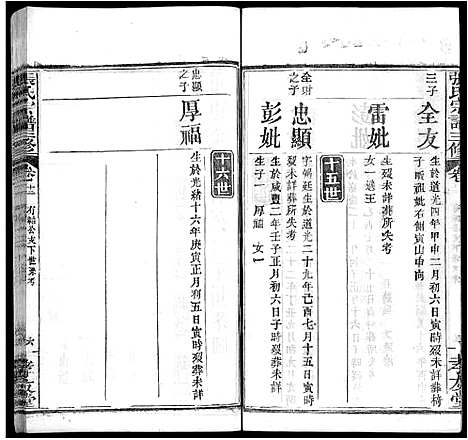 張氏宗譜三修
卷
孝友堂
三子
全友
生於道光四年甲申二月初六日寅時歿
子所祖妣右側寅山申向
雷妣
生歿未詳葬所失考
女一適王
十五世
全財之子
忠顯
字錫廷生於道光二十九年己酉七月十五日寅時
歿葬未詳葬所失考
彭妣
生於咸豐二年壬子正月初六日子時歿葬未詳
生子一 厚福 女一
十六世
忠顯之子
厚福
生於光緒十六年庚寅正月初五日寅時歿葬未詳
張氏宗譜三修
卷十二
六
孝友堂